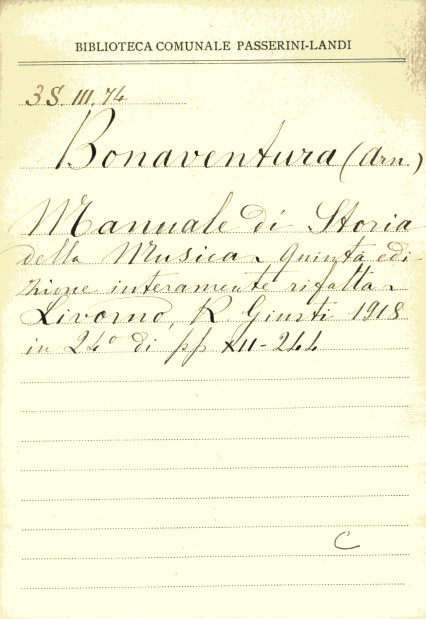 BIBLIOTECA COMUNALE PASSERINI-LANDI
3S. III. 74
Bonaventura (Arn.)
Manuale di Storia
della Musica - Quinta edi-
zione interamente rifatta -
Livorno, R. Giusti 1918
in 24° di pp XII-244
C